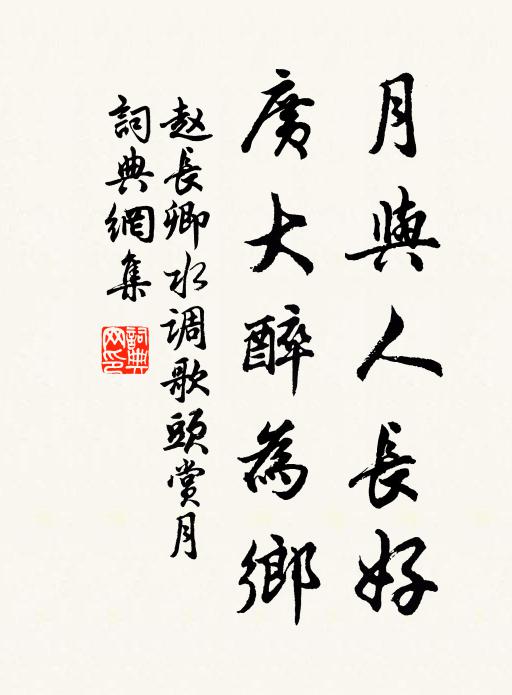 月與人長好
廣大醉為鄉
赵長卿水调歌頭賞月
詞典網集
詞典網印